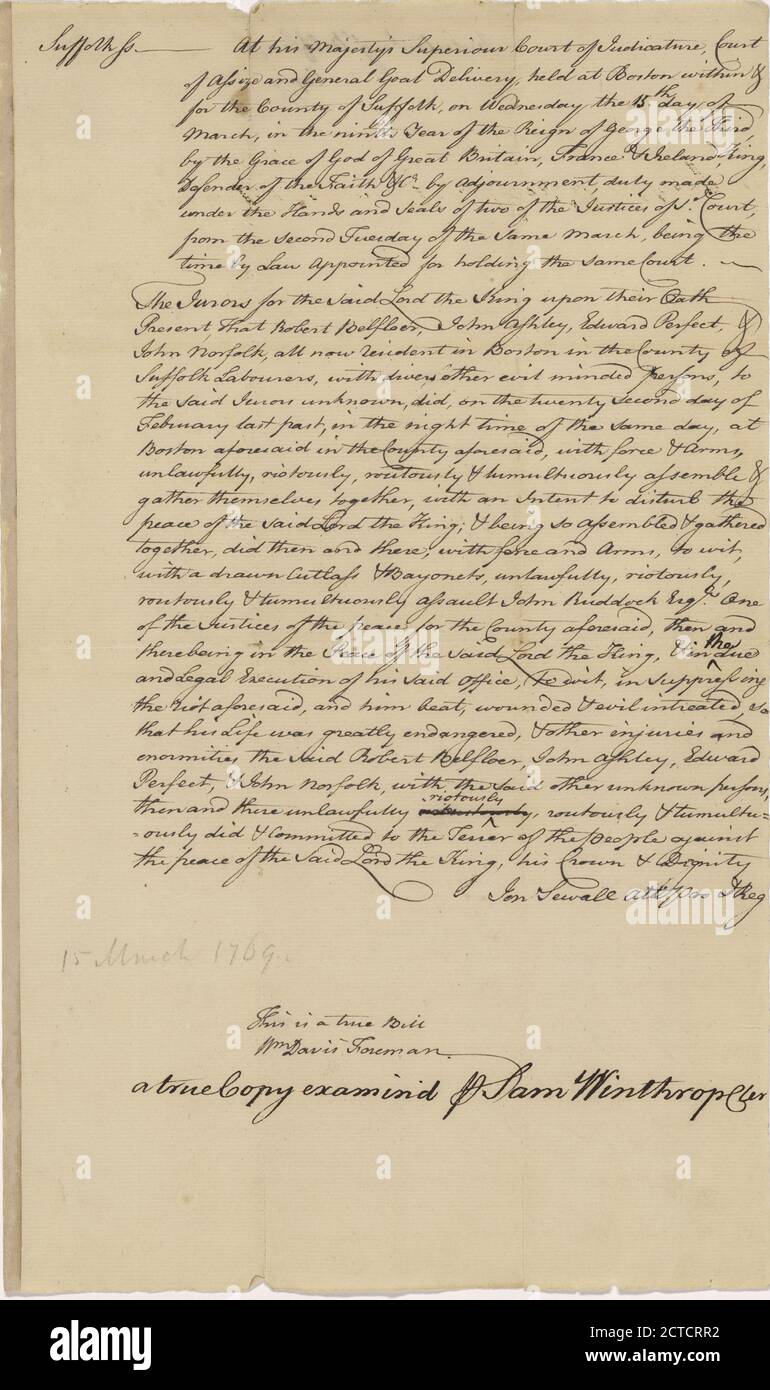 Suffolk ss. At his Majestys Superiour Court of Judicature, Court
of Assize and General Goal Delivery, held at Boston within &
for the County of Suffolk, on Wednesday the 15th day of
March, in the ninth Year of the Reign of George the Third,
by the Grace of God of Great Britain, France & Ireland, King,
Defender of the Faith &ca. by Adjournment, duly made
under the Hands and Seals of two of the Justices of sd. Court,
from the second Tuesday of the same March, being the
time by Law Appointed for holding the same Court.
The Jurors for the said Lord the King upon their Oath
Present, That Robert Belfloer, John Ashley, Edward Perfect, &
John Norfolk, all now resident in Boston in the County of
Suffolk Labourers, with divers other evil minded persons, to
the said Jurors unknown, did, on the twenty second day of
February last past, in the night time of the same day, at
Boston aforesaid in the County aforesaid, with force & Arms,
unlawfully, riotously, routously & tumultuously assemble &
gather themselves together, with an Intent to disturb the
peace of the said Lord the King; & being so assembled & gathered
together, did then and there, with force and Arms, to wit,
with a drawn Cutlass & Bayonets, unlawfully, riotously,
routously & tumultuously assault John Ruddock Esqr. One
of the Justices of the peace for the County aforesaid, then and
there being in the Peace of the said Lord the King, & in the due
and Legal Execution of his said office, to wit, in suppressing
the riot aforesaid, and him beat, wounded & evil intreated, so
that his Life was greatly endangered, & other injuries and
enormities the said Robert Belfloer, John Ashley, Edward
Perfect, & John Norfolk, with the said other unknown persons,
then and there unlawfully riotously, routously & tumultu-
=ously did & Committed to the Terror of the people against
the peace of the said Lord the King, his Crown & Dignity
Jon Sewall Att. pro D Reg
15 March 1769.
This is a true Bill
Wm Davis Foreman
a true Copy examin'd P Sam Winthrop Cler
alamy
Image ID: 2CTCRR2
www.alamy.com